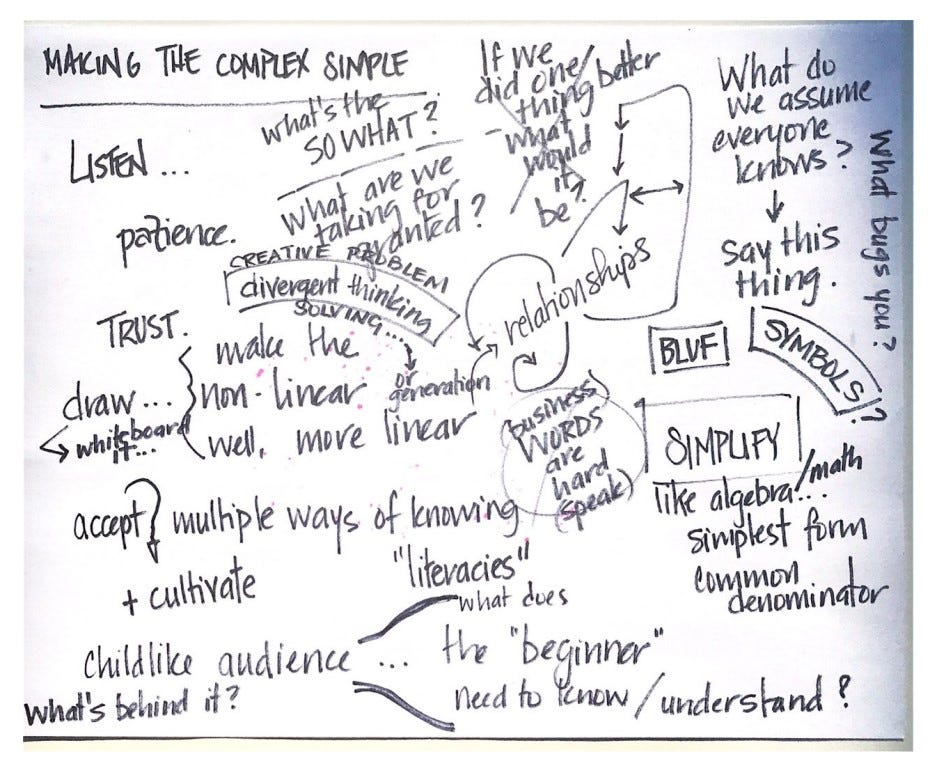 MAKING THE COMPLEX SIMPLE
LISTEN ...
patience.
TRUST.
what's the
SO WHAT?
what are we
taking for
granted?
If we
did one/
thing better
what
would
it
be?
What do
we assume
everyone
knows?
say this
thing.
What bugs you?
CREATIVE PROBLEM
divergent thinking
SOLVING...
or
generation
relationships
BLUF
SYMBOLS?
draw...
whiteboard
it...
make the
non-linear
well, more linear
(business)
WORDS
are
hard
(speak)
SIMPLIFY
like algebra/math
...
simplest form
common
denominator
accept multiple ways of knowing
+ cultivate
"literacies"
childlike audience ...
what does
the "beginner"
need to know/understand?
what's behind it?